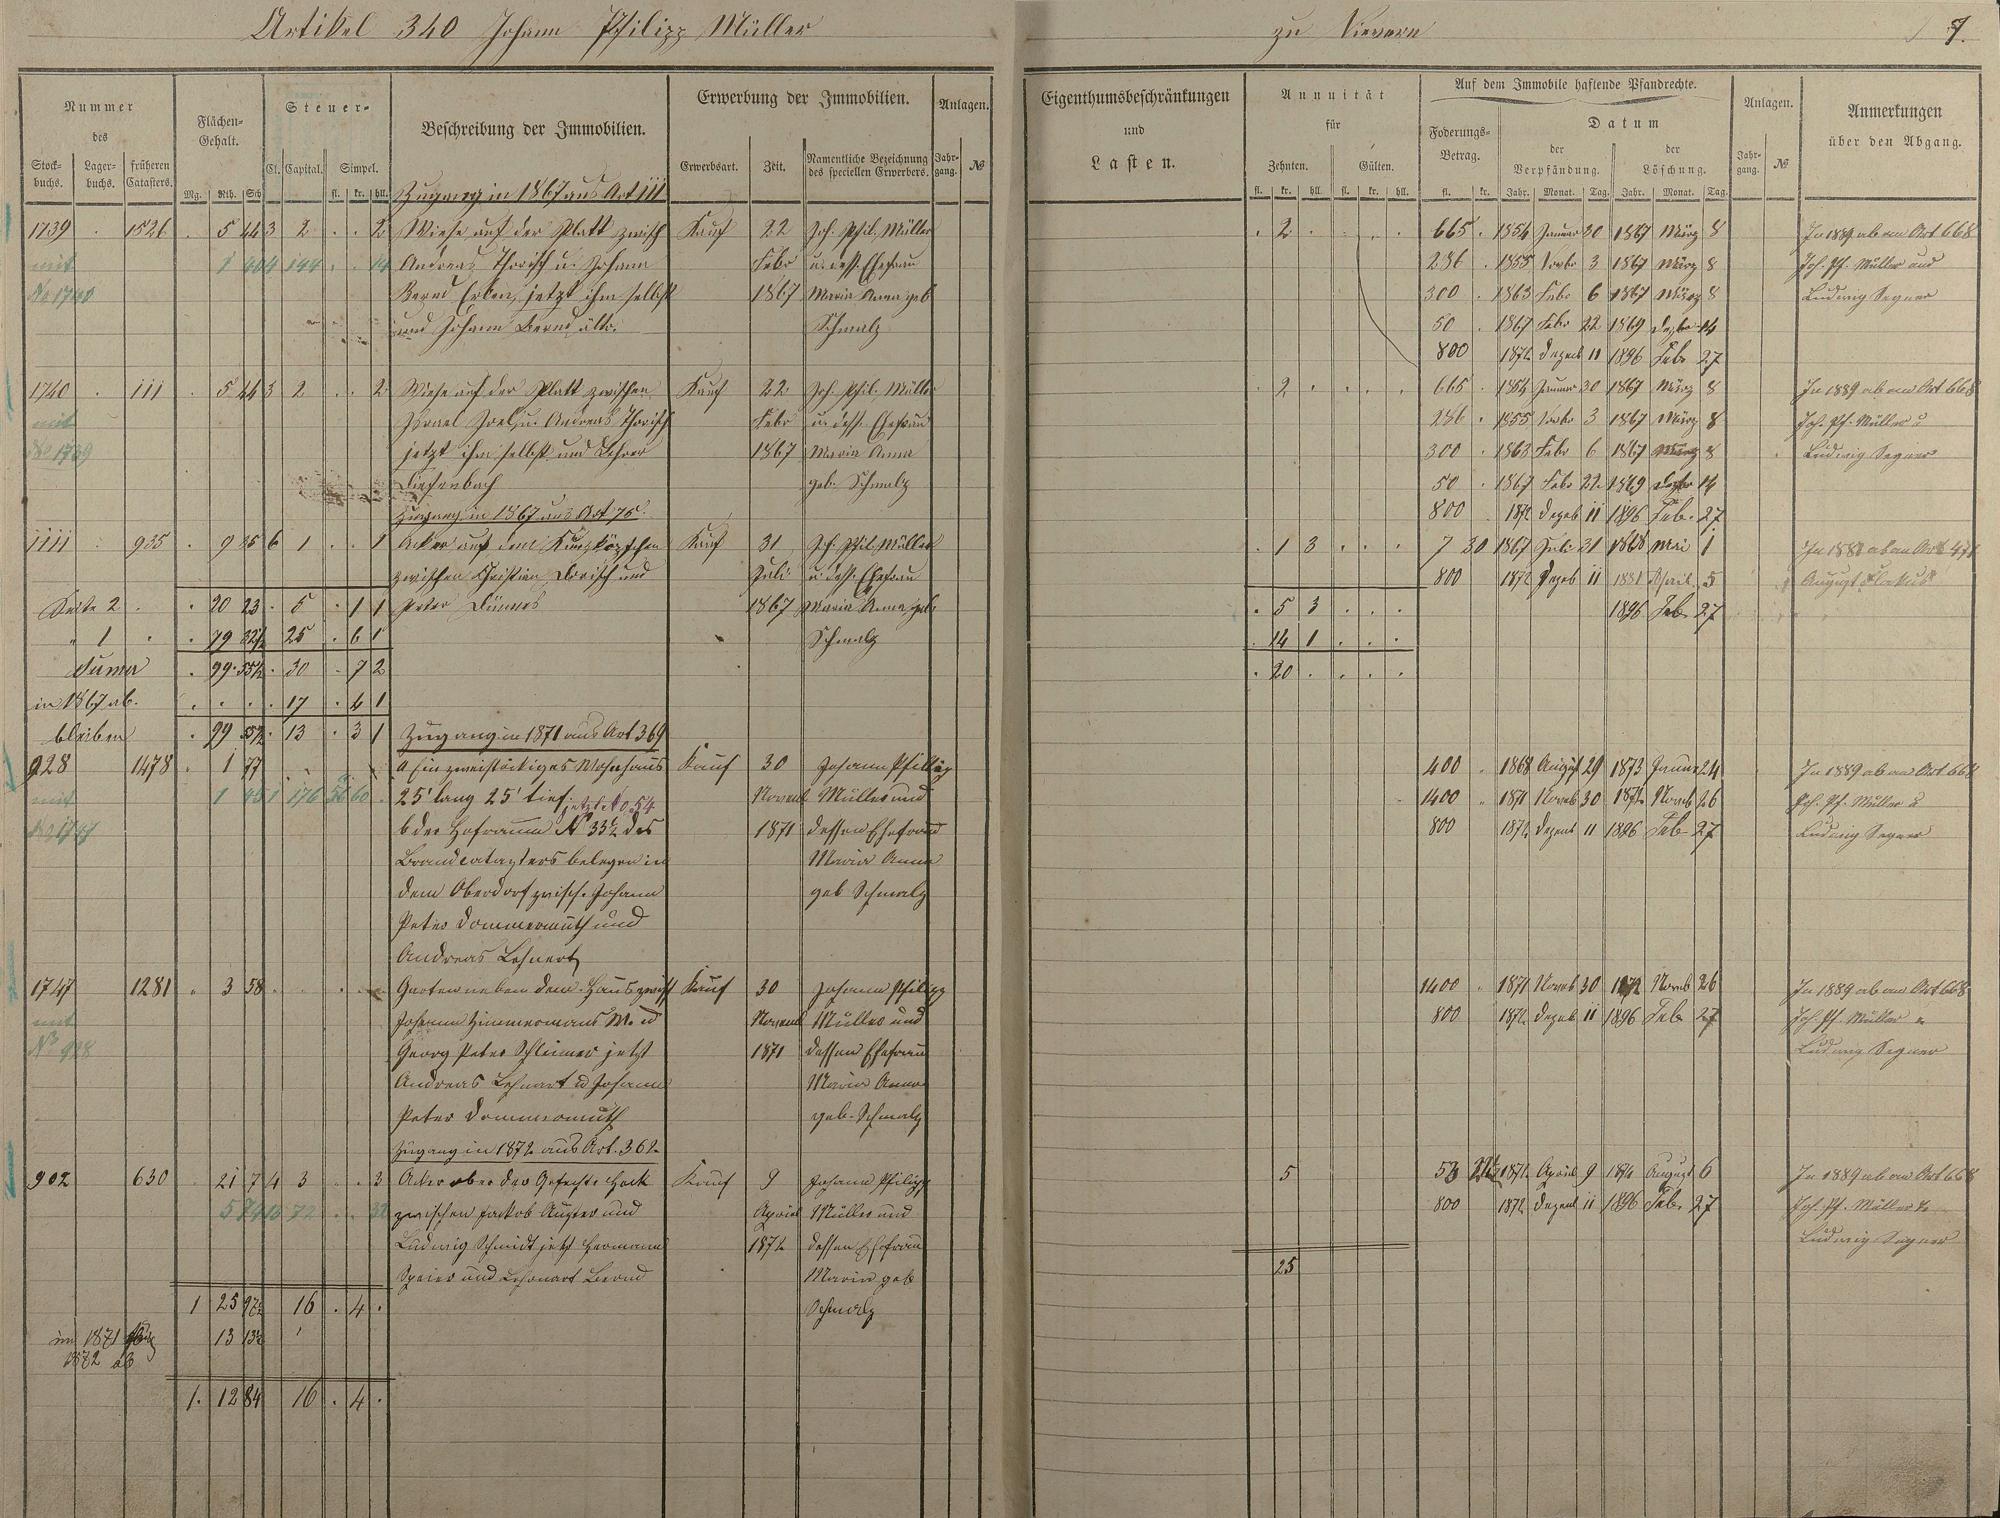 Artikel 340 Johann Philipp Müller
zu Nievern
7.
Nummer des
Stock-buchs. Lager-buchs. früheren Catasters.
Flächen-Gehalt.
Mg. Rth. Sch
Steuer-
Cl. Capital. Simpel.
fl. kr. hll.
Beschreibung der Immobilien.
Erwerbung der Immobilien.
Erwerbsart. Zeit. Namentliche Bezeichnung des speciellen Erwerbers.
Anlagen.
Jahr-gang. №
Eigenthumsbeschränkungen und Lasten.
Annuität für
Zehnten. Gülten.
fl. kr. hll. fl. kr. hll.
Auf dem Immobile haftende Pfandrechte.
Foderungs-Betrag.
fl. kr.
Datum
der Verpfändung. der Löschung.
Jahr. Monat. Tag. Jahr. Monat. Tag.
Anlagen.
Jahr-gang. №
Anmerkungen über den Abgang.
Zugang in 1867 aus Art 111
1739 1526 5 44 3 2 2 Wiese auf der Platt zwisch Kauf 22 Joh. Phil. Müller 2 665 1854 Januar 30 1867 März 8 In 1889 ab an Art 668
mit 1 40 4 144 14 Andreas Thorisch u. Johann Febr u. dess. Ehefrau 286 1855 Novbr 3 1867 März 8 Joh. Ph. Müller und
No 1740 Bernd Erben, jetzt ihm selbst 1867 Maria Anna geb 300 1863 Febr 6 1867 März 8 Ludwig Segner
und Johann Bernd ältr. Schmalz 50 1867 Febr 22 1869 Dezbr 14
800 1872 Dezemb 11 1896 Feb. 27
1740 111 5 44 3 2 2 Wiese auf der Platt zwischen Kauf 22 Joh. Phil. Müller 2 665 1854 Januar 30 1867 März 8 In 1889 ab an Art 668
mit Israel Joel, u. Andreas Thorisch Febr u. dess. Ehefrau 286 1855 Novbr 3 1867 März 8 Joh. Ph. Müller u
No 1739 jetzt ihm selbst und Lehrer 1867 Maria Anna 300 1863 Febr 6 1867 März 8 Ludwig Segner
Diefenbach geb. Schmalz 50 1867 Febr 22 1869 Dezbr 14
Zugang in 1867 aus Art 75. 800 1872 Dezeb 11 1896 Feb. 27
1111 935 9 35 6 1 1 Acker auf dem Kunzköpfchen Kauf 31 Joh. Phil. Müller 1 3 7 30 1867 Juli 31 1868 Mai 1
zwischen Christian Dorisch und Juli u. dess. Ehefrau 800 1872 Dezeb 11 1881 April 5 August
Seite 2 20 23 5 1 1 Peter 1867 Maria Anna geb. 5 3 1896 Feb. 27
" 1 79 32½ 25 6 1 Schmalz 14 1
Suma 99 55½ 30 7 2 20
in 1867 ab. 17 4 1
bleiben 99 55½ 13 3 1 Zugang in 1871 aus Art 369
928 1478 1 77 a Ein zweistöckiges Wohnhaus Kauf 30 Johann Philipp 400 1868 August 29 1873 Januar 24 In 1889 ab an Art 668
mit 1 45 1 176 60 25' lang 25' tief jetzt No 54 Novemb Müller und 1400 1871 Novb 30 1872 Novb 26 Joh. Ph. Müller u
No 1747 b der Hofraum № 33½ des 1871 dessen Ehefrau 800 1872 Dezemb 11 1896 Feb 27 Ludwig Segner
Brandcatasters belegen in Maria Anna
dem Oberdorf zwisch. Johann geb Schmalz
Peter Dommermuth und
Andreas Lehnert
1747 1281 3 58 Garten neben dem Haus zwisch Kauf 30 Johann Philipp 1400 1871 Novb 30 1872 Novb 26 In 1889 ab an Art 668
mit Johann Zimmermans W. u Novemb Müller und 800 1872 Dezeb 11 1896 Feb. 27 Joh. Ph. Müller u
No 928 Georg Peter Schleimer jetzt 1871 dessen Ehefrau Ludwig Segner
Andreas Lehnart u Johann Maria Anna
Peter Dommermuth geb. Schmalz
Zugang in 1872 aus Art. 362
902 630 21 7 4 3 3 Acker ober der Kauf 9 Johann Philipp 5 53 1872 April 9 1874 August 6 In 1889 ab an Art 668
72 zwischen Jackob Augster und April Müller und 800 1872 Dezemb 11 1896 Feb. 27 Joh. Ph. Müller u
Ludwig Schmidt jetzt Hermann 1872 dessen Ehefrau Ludwig Segner
Speier und Lehnart Bernd Maria geb 25
1 25 97½ 16 4 Schmalz
im 1871 13 13½
1872 ab
1. 12 84 16 4